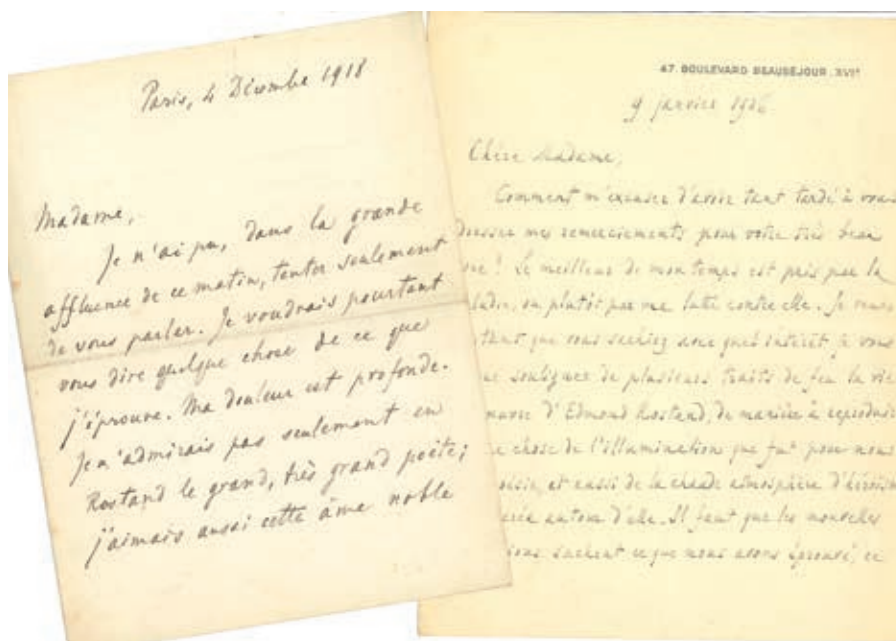 Paris, 4 Décembre 1918
Madame,
Je n'ai pu, dans la grande
affluence de ce matin, tenter seulement
de vous parler. Je voudrais pourtant
vous dire quelque chose de ce que
j'éprouve. Ma douleur est profonde.
Je n'admirais pas seulement en
Rostand le grand, très grand poète;
j'aimais aussi cette âme noble
47. BOULEVARD BEAUSÉJOUR. XVIᵉ
9 janvier
Chère Madame,
Comment m'excuser d'avoir tant tardé à vous
dresser mes remerciements pour votre très beau
! Le meilleur de mon temps est pris par la
ladie, ou plutôt par ma lutte contre elle. Je
tant que vous sachiez avec quel intérêt je vous
soulignez de plusieurs traits de feu la vie
d'Edmond Rostand, de manière à reproduire
chose de l'illumination que fut pour nous
et aussi de la chaude atmosphère d'héroïsme
autour d'elle. Il faut que les nouvelles
sachent ce que nous avons éprouvé, ce